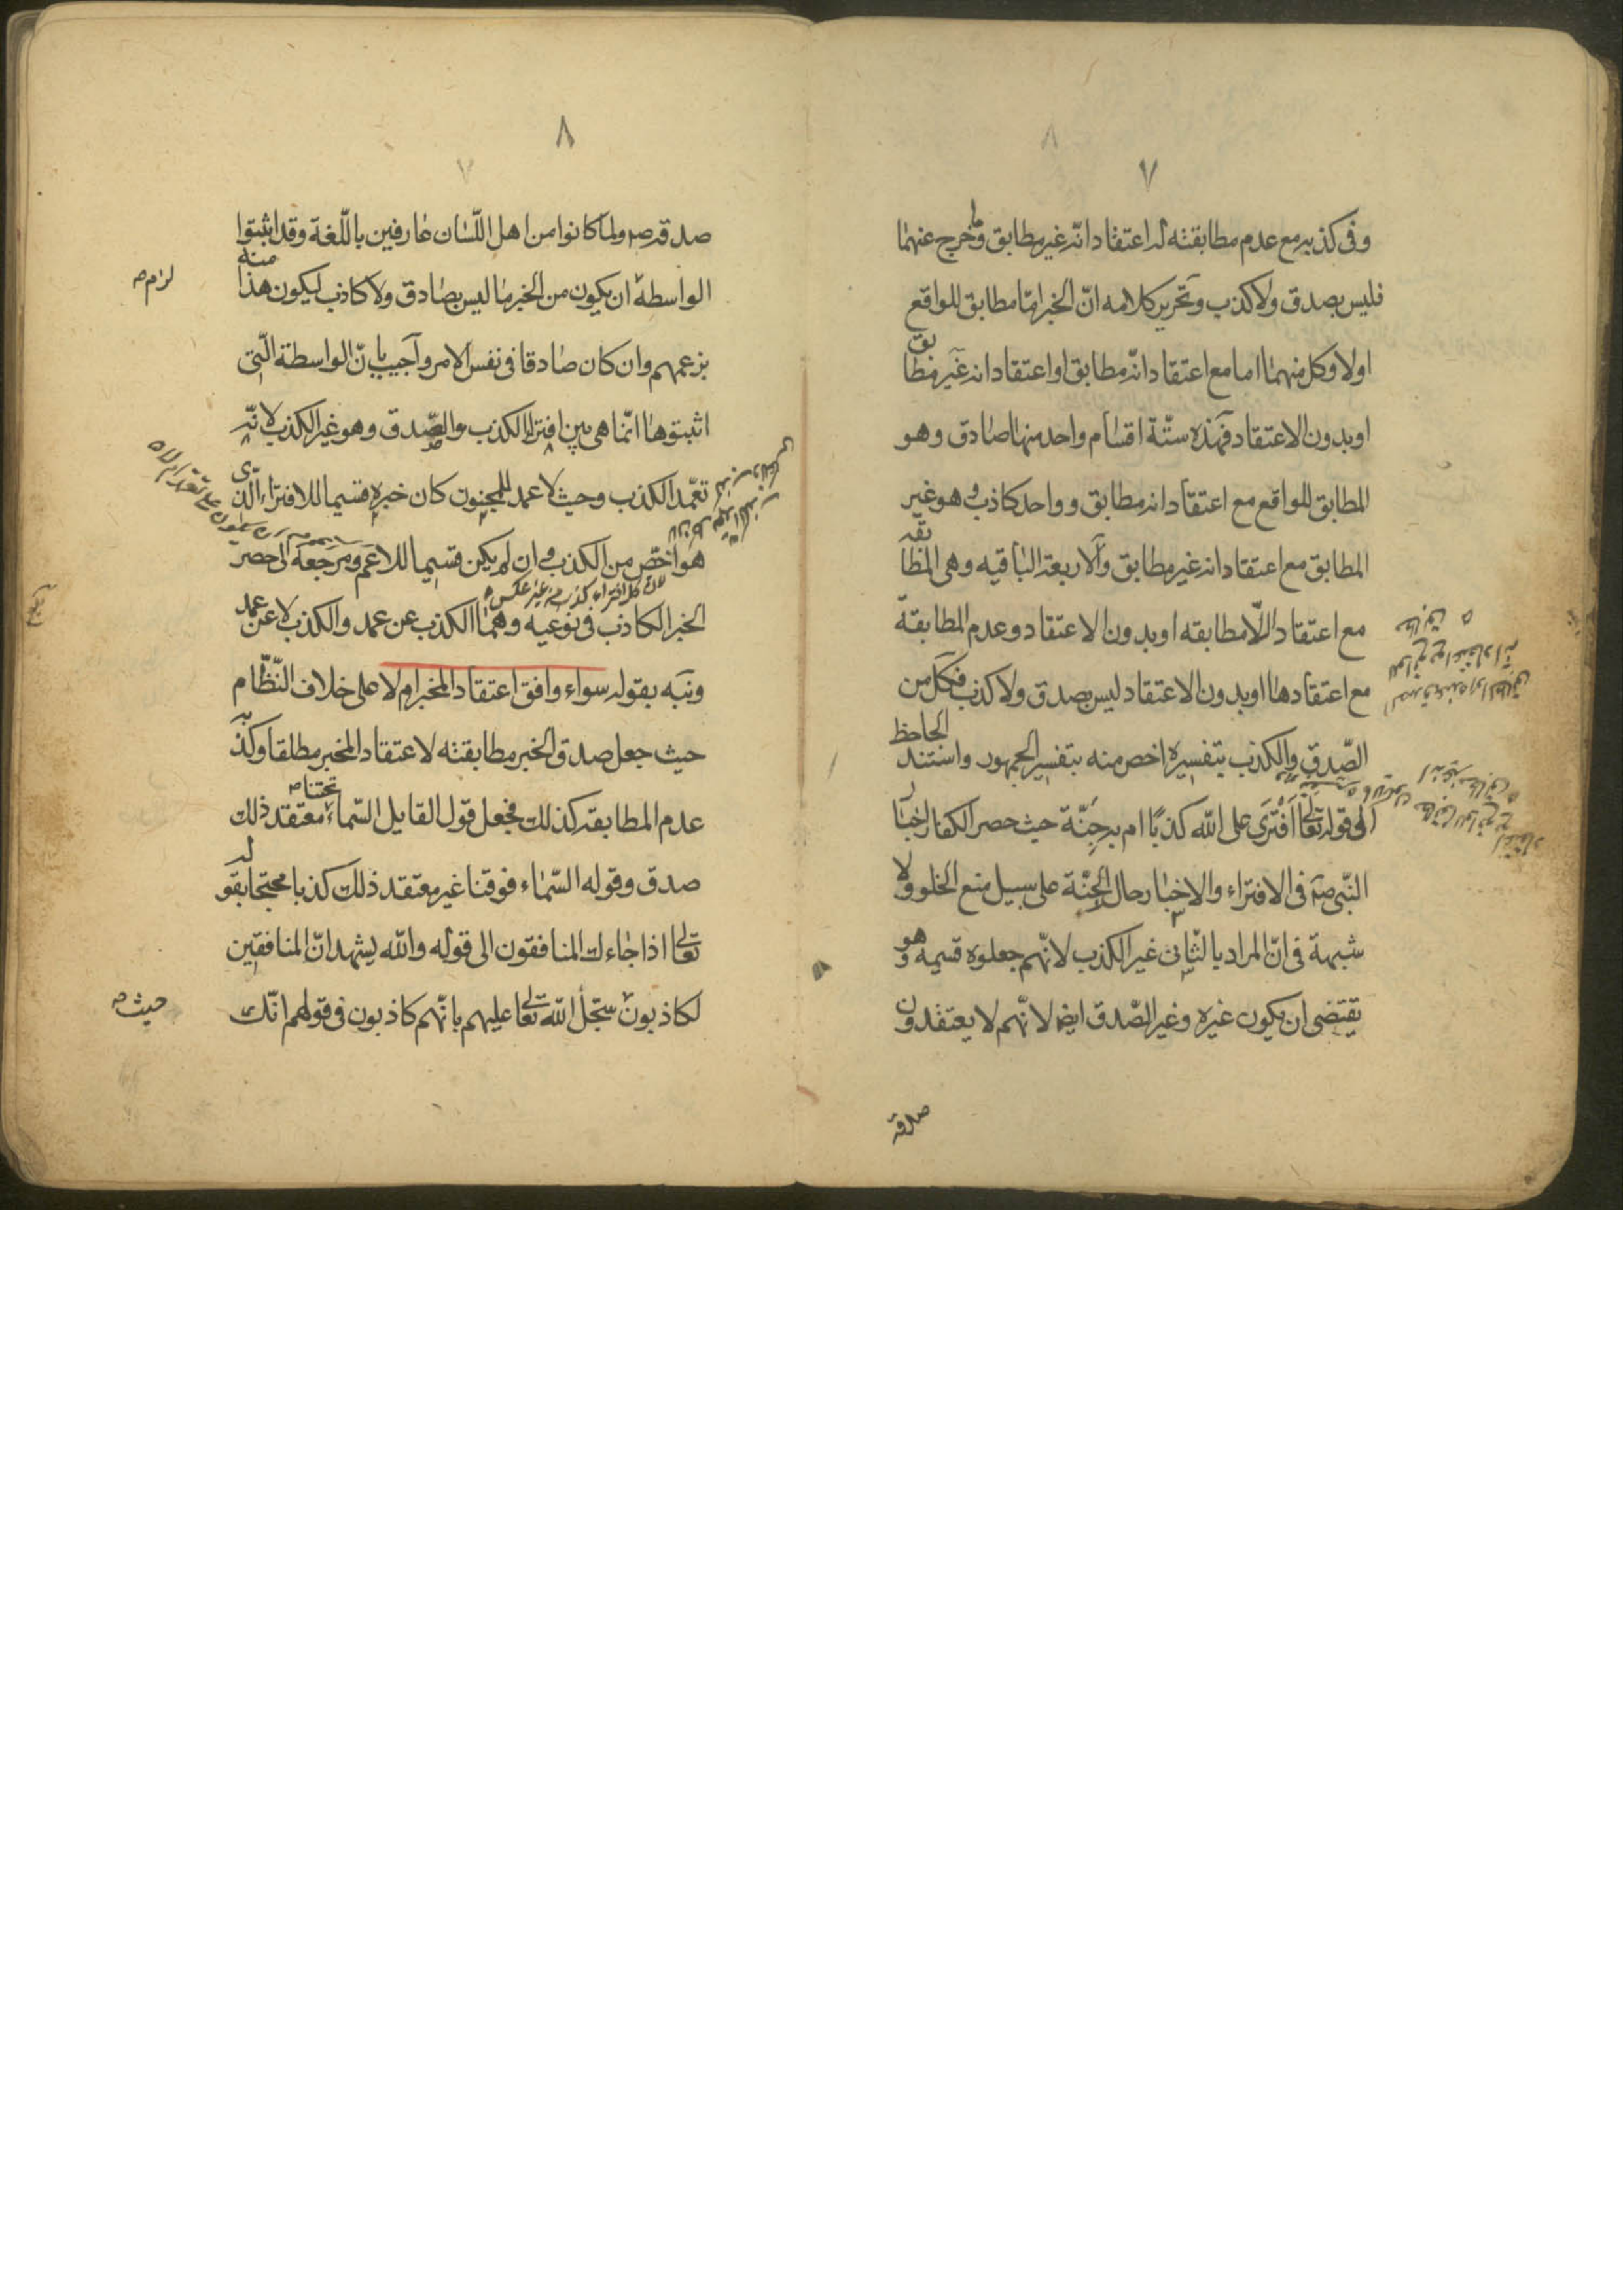 ٧
وفى كذبه مع عدم مطابقته له اعتقاد انّه غير مطابق وما خرج عنهما
فليس بصدق ولا كذب وتحرير كلامه انّ الخبر امّا مطابق للواقع
اولا وكل منهما اما مع اعتقاد انّه مطابق او اعتقاد انه غير مطابق
او بدون الاعتقاد فهذه ستّة اقسام واحد منها صادق وهو
المطابق للواقع مع اعتقاد انه مطابق وواحد كاذب وهو غير
المطابق مع اعتقاد انه غير مطابق والاربعة الباقيه وهى المطابقه
مع اعتقاد اللّامطابقه او بدون الاعتقاد وعدم المطابقة
مع اعتقادها او بدون الاعتقاد ليس بصدق ولا كذب فكل من
الصّدق والكذب بتفسيره اخص منه بتفسير الجمهور واستند الجاحظ
الى قوله تعالى اَفْتَرَى على الله كذبًا ام به جِنَّة حيث حصر الكفار اخبار
النّبى صه فى الافتراء والاخبار حال الجِنّة على سبيل منع الخلو ولا
شبهة فى انّ المراد بالثّانى غير الكذب لانّهم جعلوه قسيمه وهو
يقتضى ان يكون غيره وغير الصّدق ايضا لانّهم لا يعتقدون
صدقه
٨
صدقه ولما كانوا من اهل اللّسان عارفين باللّغة وقد اثبتوا
الواسطة ان يكون من الخبر ما ليس بصادق ولا كاذب ليكون هذا منه
لزم صه
بزعمهم وان كان صادقا فى نفس الامر واجيب بانّ الواسطة الّتى
اثبتوها انّما هى بين افتراء الكذب والصّدق وهو غير الكذب لانّه
تعمّد الكذب وحيث لا عمد للمجنون كان خبره قسيما للافتراء الّذى
هو اخصّ من الكذب وان لم يكن قسيما للاعم ومرجعه الى حصر
لان كل افتراء كذب من غير عكس
الخبر الكاذب فى نوعيه وهما الكذب عن عمد والكذب لا عن عمد
ونبه بقوله سواء وافق اعتقاد المخبر ام لا على خلاف النّظّام
حيث جعل صدق الخبر مطابقته لاعتقاد المخبر مطلقا وكذبه
عدم المطابقه كذلك فجعل قول القايل السّماء تحتنا معتقد ذلك
صدق وقوله السّماء فوقنا غير معتقد ذلك كذبا محتجا بقوله
تعالى اذا جاءك المنافقون الى قوله والله يشهد انّ المنافقين
لكاذبون سجّل الله تعالى عليهم بانّهم كاذبون فى قولهم انّك
حيث صه